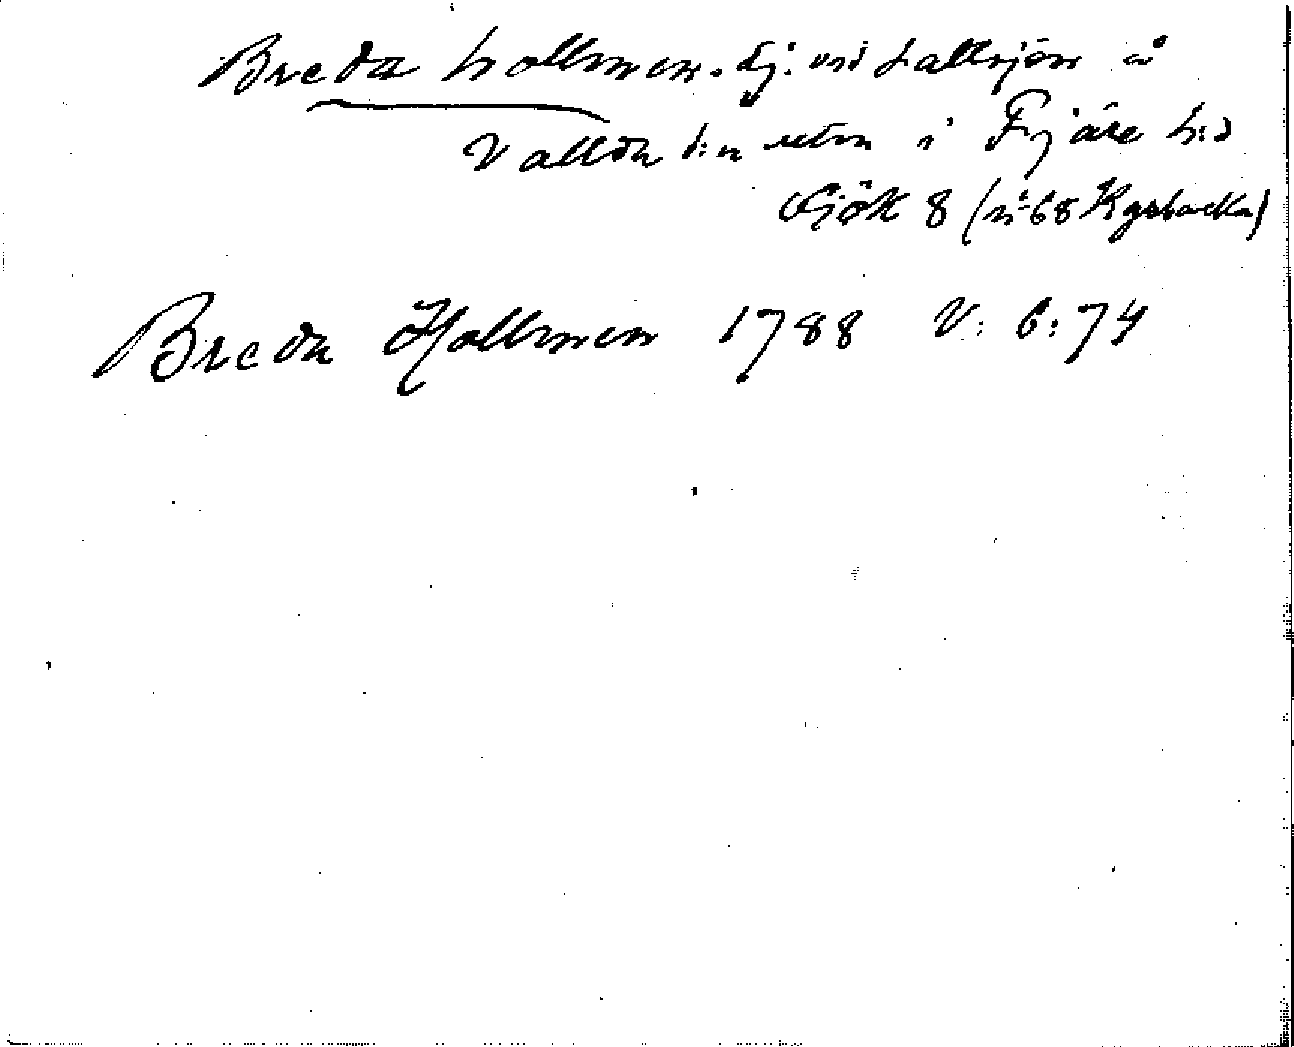 Breda hallmen. Lj. vid Lallsjön å
Vallda s:n utm i Fjäre h:d
GÖK 8 (nr 68 Kgsbacka)
Breda Hallmen 1788 V: 6: 74